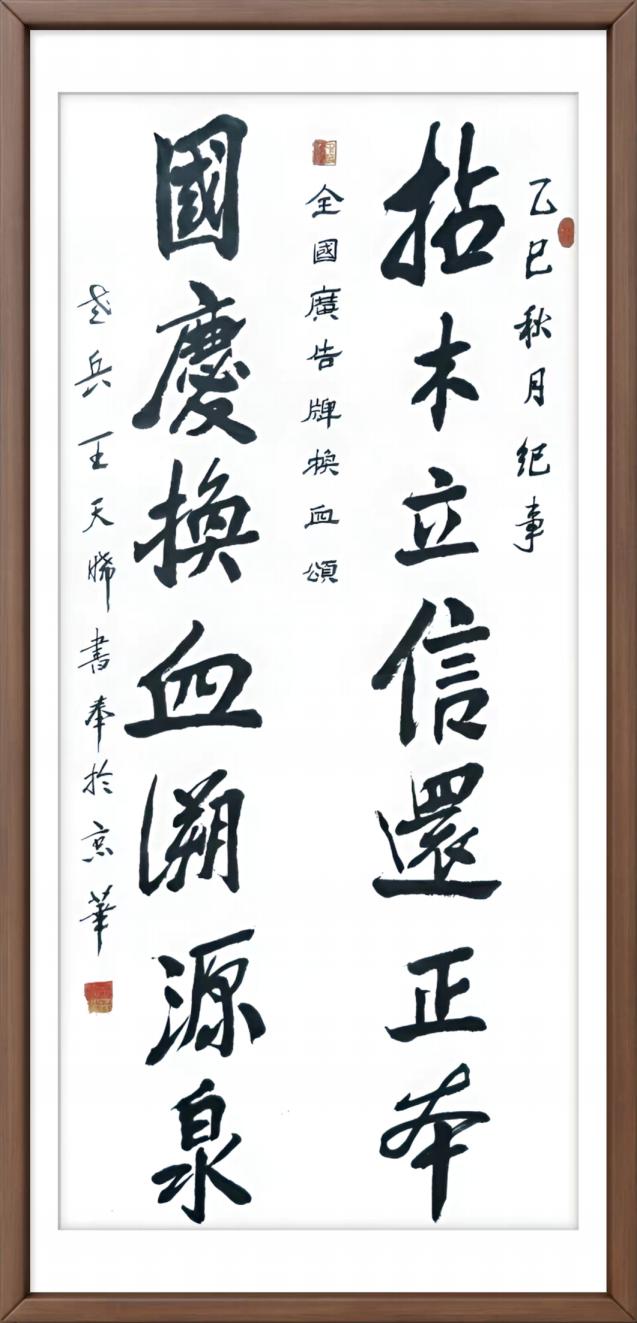 乙巳秋月紀事
拈木立信還正本
全國廣告牌換血頌
國慶換血溯源泉
老兵王天晞書奉於京華